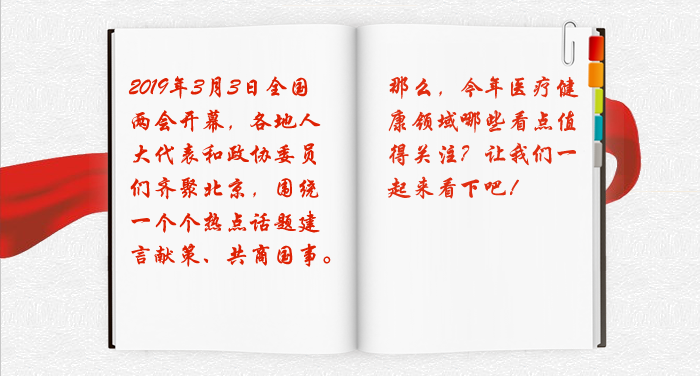 2019年3月3日全国
两会开幕，各地人
大代表和政协委员
们齐聚北京，围绕
一个个热点话题建
言献策、共商国事。
那么，今年医疗健
康领域哪些看点值
得关注？让我们一
起来看下吧！